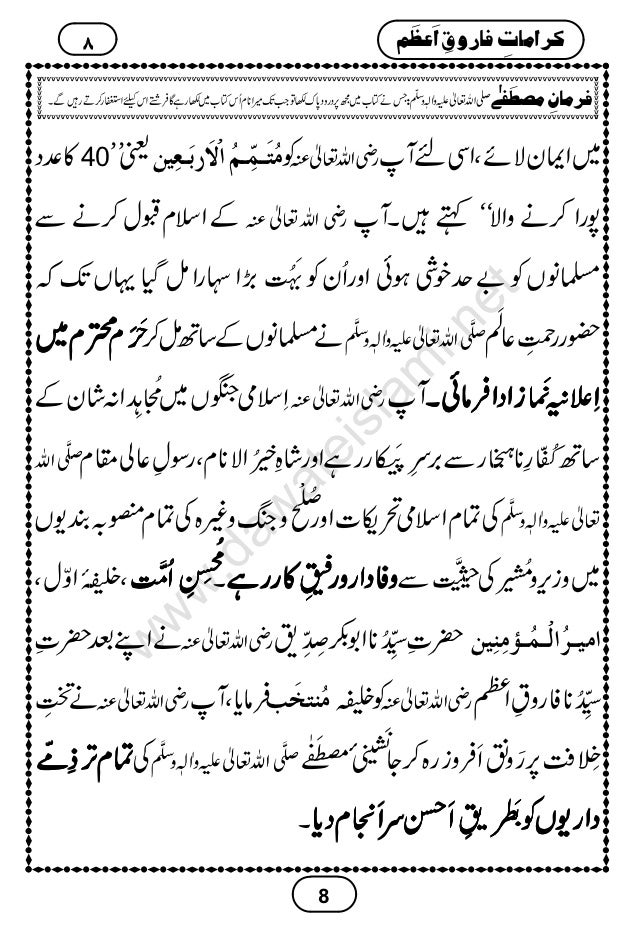 کراماتِ فاروقِ اَعظَم
۸
فرمانِ مصطَفٰے صلی اللہ تعالیٰ علیہ واٰلہٖ وسلم: جس نے کتاب میں مجھ پر درودِ پاک لکھا تو جب تک میرا نام اُس کتاب میں لکھا رہے گا فرشتے اس کیلئے استغفار کرتے رہیں گے۔
میں ایمان لائے، اسی لئے آپ رضی اللہ تعالیٰ عنہ کو مُتَمِّمُ الْاَرْبَعِین یعنی ’’40 کا عدد
پورا کرنے والا‘‘ کہتے ہیں۔ آپ رضی اللہ تعالیٰ عنہ کے اسلام قبول کرنے سے
مسلمانوں کو بے حد خوشی ہوئی اور اُن کو بَہُت بڑا سہارا مل گیا یہاں تک کہ
حضور رحمتِ عالَم صلَّی اللہ تعالیٰ علیہ واٰلہٖ وسلَّم نے مسلمانوں کے ساتھ مل کر حَرَمِ محترم میں
اِعلانیہ نَماز ادا فرمائی۔ آپ رضی اللہ تعالیٰ عنہ اِسلامی جنگوں میں مُجاہِدانہ شان کے
ساتھ کُفّارِ ناہنجار سے برسرِ پَیکار رہے اور شاہِ خیرُ الانام، رسولِ عالی مقام صلَّی اللہ
تعالیٰ علیہ واٰلہٖ وسلَّم کی تمام اسلامی تحریکات اور صُلْح و جنگ وغیرہ کی تمام منصوبہ بندیوں
میں وزیر و مُشیر کی حیثیَّت سے وفادار و رفیقِ کار رہے۔ مُحسِنِ اُمَّت، خلیفۂ اوّل،
امیرُ الْمُؤمِنِین حضرتِ سیِّدُنا ابو بکر صِدِّیق رضی اللہ تعالیٰ عنہ نے اپنے بعد حضرتِ
سیِّدُنا فاروقِ اعظم رضی اللہ تعالیٰ عنہ کو خلیفہ مُنتخَب فرمایا، آپ رضی اللہ تعالیٰ عنہ نے تختِ
خِلافت پر رَونق اَفروز رہ کر جانَشینیٔ مصطَفٰے صلَّی اللہ تعالیٰ علیہ واٰلہٖ وسلَّم کی تمام تر ذِمّے
داریوں کو بَطریقِ اَحسن سر اَنجام دیا۔
8
www.dawateislami.net